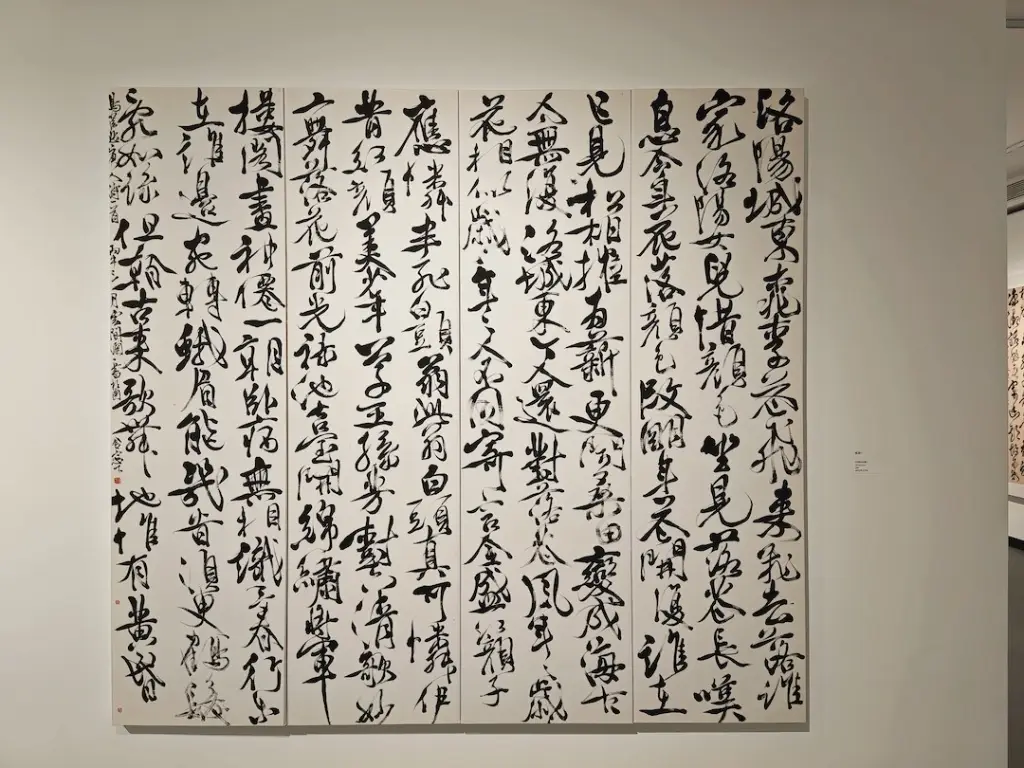 洛陽城東桃李花飛來飛去落誰
家洛陽女兒惜顏色坐見落花長嘆
息今年花落顏色改明年花開復誰在
已見松柏摧為薪更聞桑田變成海古
人無復洛城東今人還對落花風年〻歲〻
花相似歲〻年〻人不同寄言全盛紅顏子
應憐半死白頭翁此翁白頭真可憐伊
昔紅顏美少年公子王孫芳樹下清歌妙
舞落花前光祿池臺開錦繡將軍
樓閣畫神僊一朝臥病無相識三春行樂
在誰邊宛轉蛾眉能幾時須臾鶴髮
亂如絲但看古來歌舞地惟有黃昏
鳥雀悲